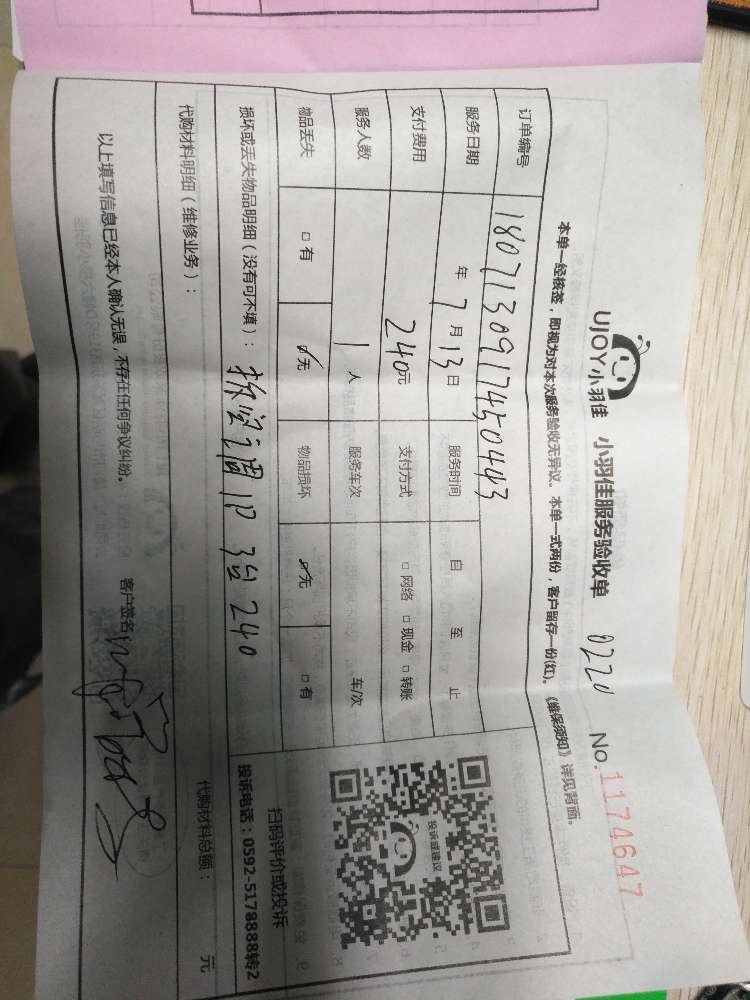 UJOY小羽佳 小羽佳服务验收单 0220 No.1174647
本单一经核签，即视为对本次服务验收无异议。本单一式两份，客户留存一份(红)。《维保须知》详见背面。
订单编号 180713091745044３
服务日期 年 7 月 13 日 服务时间 自 至 止
支付费用 240元 支付方式 □ 网络 □ 现金 □ 转账
服务人数 1 人 服务车次 车/次
物品丢失 □ 有 ☑无 物品损坏 ☑无 □ 有
投诉或建议
扫码评价或投诉
投诉电话：0592-5178888转2
损坏或丢失物品明细（没有可不填）： 拆空调1P 240
代购材料明细（维修业务）： 代购材料总额： 元
以上填写信息已经本人确认无误，不存在任何争议纠纷。 客户签名